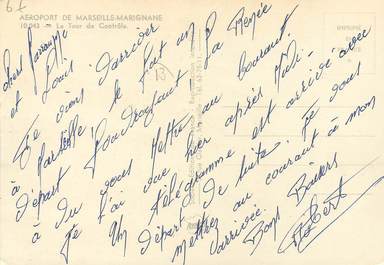 67
AÉROPORT DE MARSEILLE-MARIGNANE
10.043 — La Tour de Contrôle.
Chers
et Louis
Je viens d'arriver
à Marseille. le fait un
départ foudroyant La Renée
a du vous mettre au courant.
Je l'ai vue hier après midi.
Un télégramme est arrivé avec
départ de suite. Je vous
mettrez au courant à mon
arrivée.
Bons Baisers
Albert